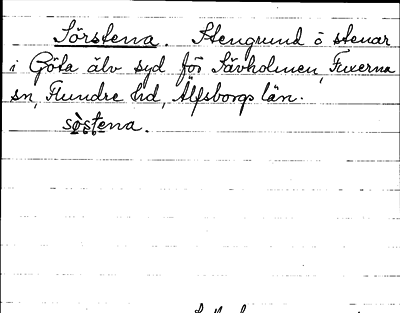 Sörstena. Stengrund o stenar
i Göta älv syd för Sävholmen, Fuxerna
sn, Flundre hd, Älfsborgs län.
sɷ̀stena.